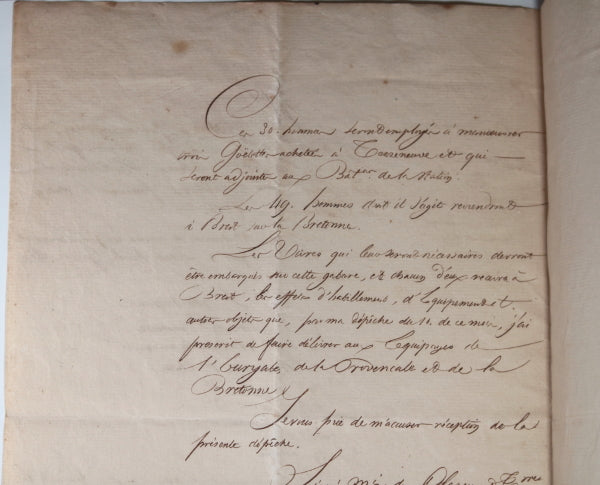 Ces 30. hommes seront employés à manœuvrer
trois Goëlettes achetées à Terreneuve et qui
seront adjointes aux Bâtts. de la Station.
Les 49. hommes dont il s'agit reviendront
à Brest sur la Bretonne.
Les Vivres qui leur seront nécessaires devront
être embarqués sur cette gabare, et chacun d'eux recevra à
Brest, les effets d'habillement, d'Equipement et
autres objets que, par ma dépêche du 12. de ce mois, j'ai
prescrit de faire délivrer aux Equipages de
l'Euryale, de la Provençale et de la
Bretonne.
Je vous prie de m'accuser réception de la
présente dépêche.